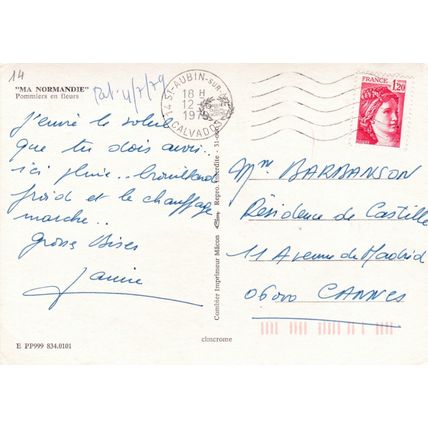 14
"MA NORMANDIE"
Pommiers en fleurs
14 ST-AUBIN-SUR-MER
18 H
12-
1979
CALVADOS
FRANCE
1,20
J'envie le soleil
que tu dois avoir..
ici pluie.. brouillard
froid et le chauffage
marche..
Gross Bises
Janine
Combier Imprimeur Mâcon
Repro. interdite
Mme BARBANSON
Résidence de Castille
11 Avenue de Madrid
06000 CANNES
cimcrome
E PP999 834.0101